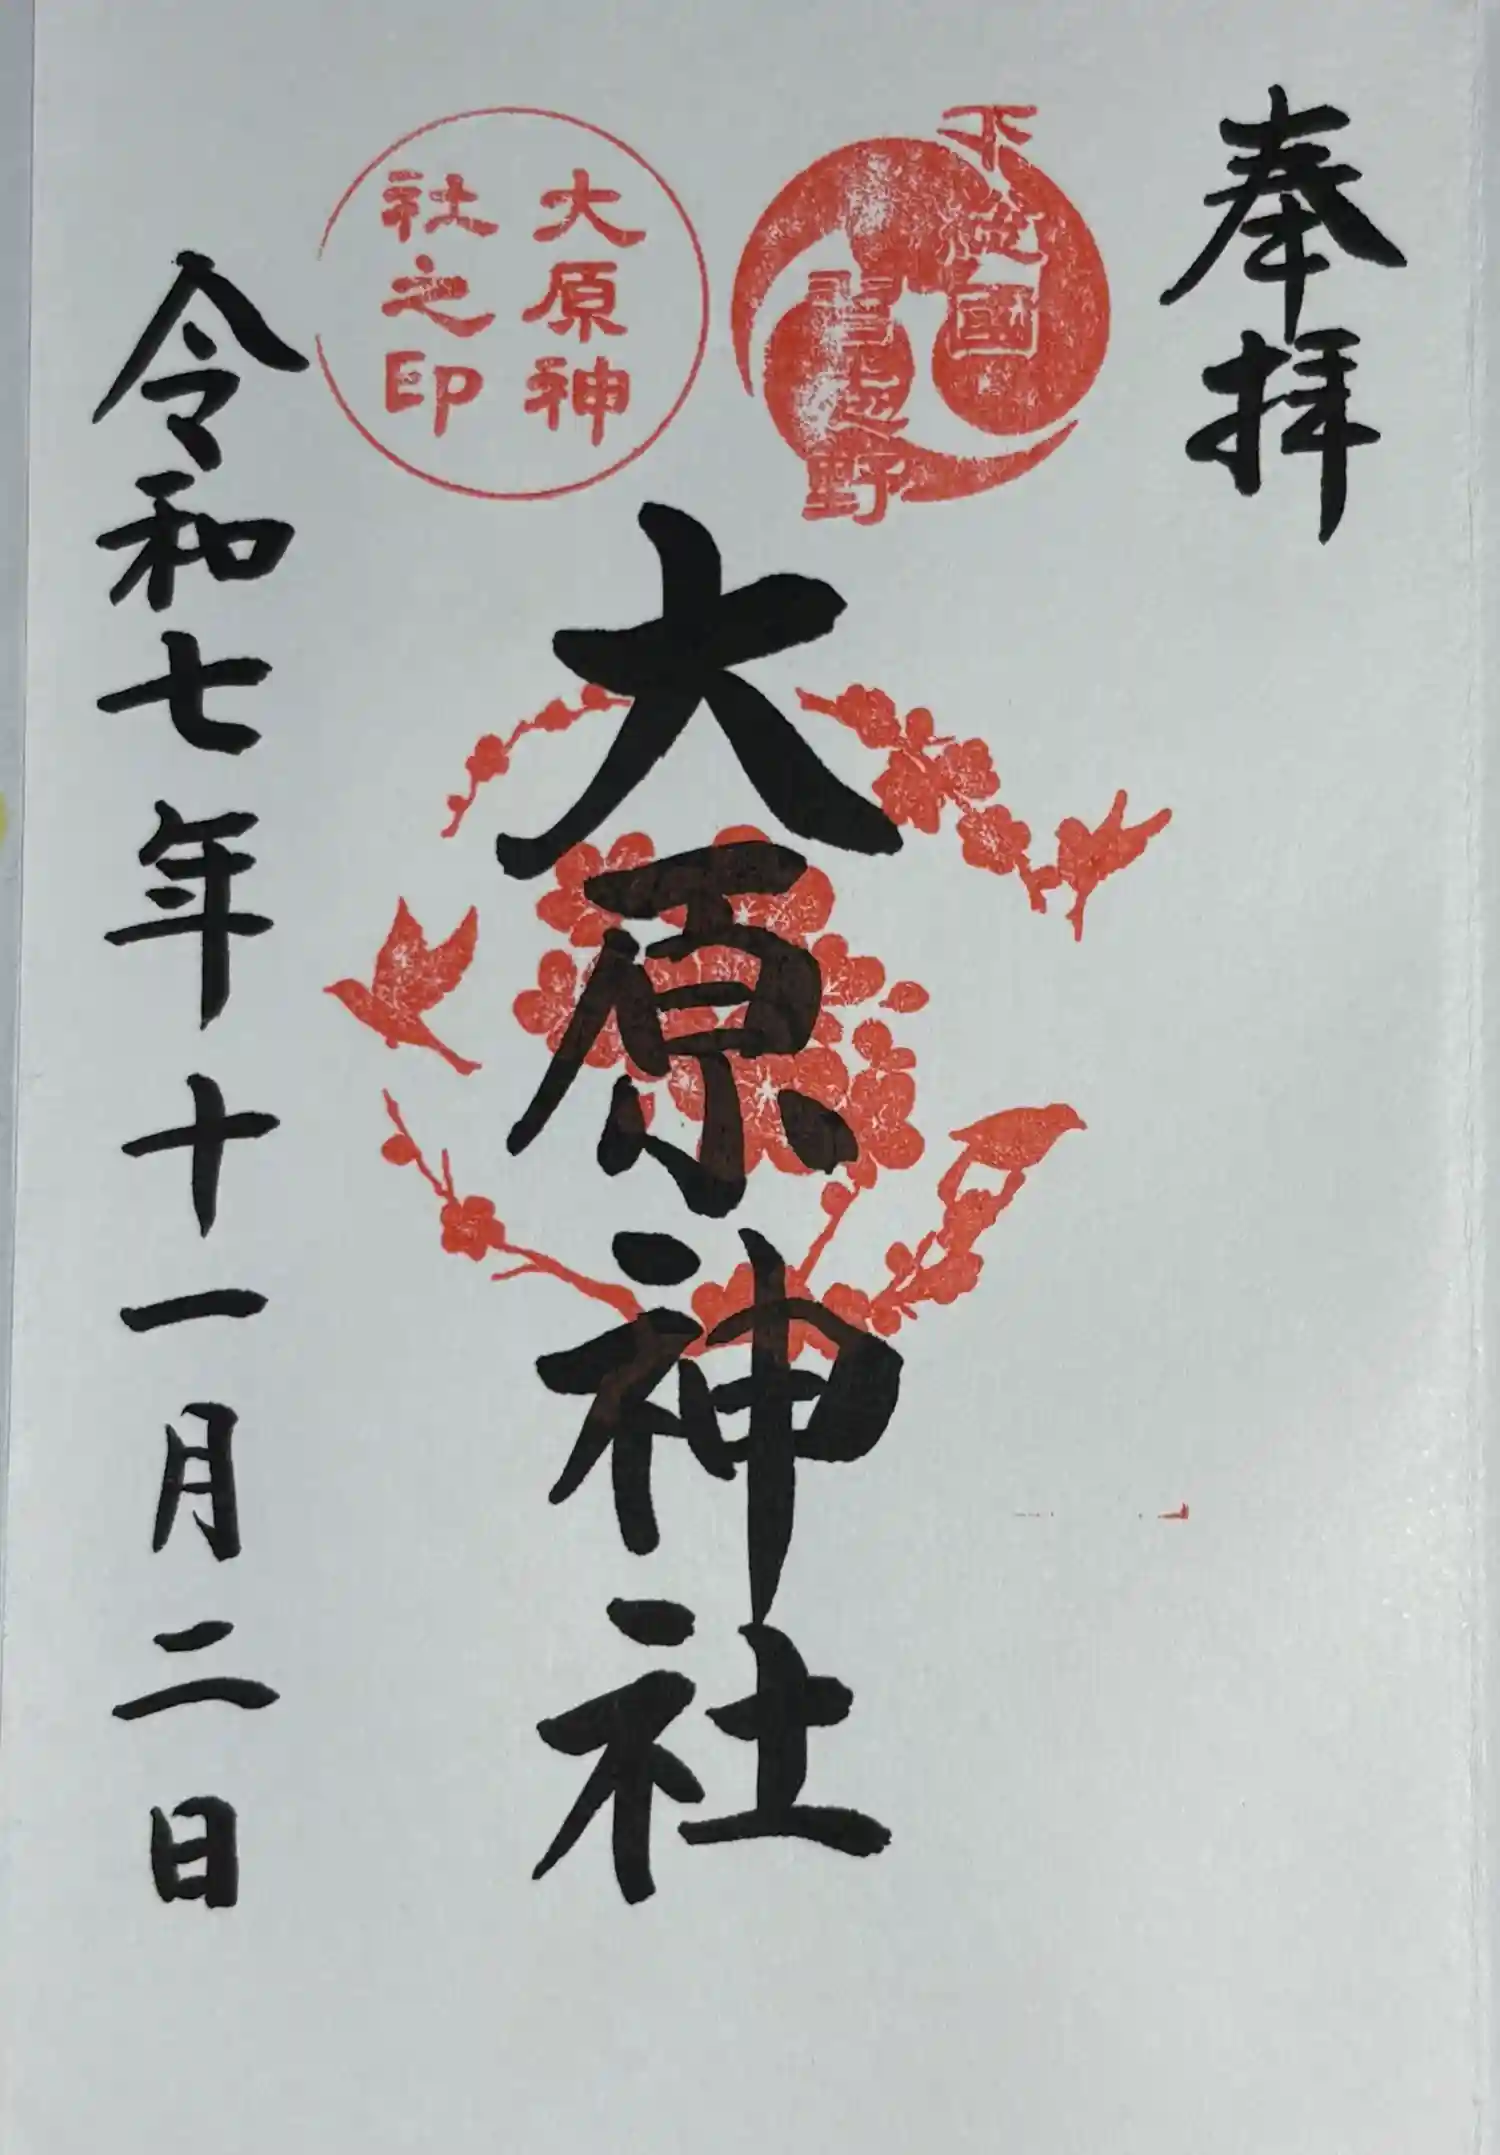 奉拝
下総國
習志野
大原神
社之印
大原神社
令和七年十一月二日